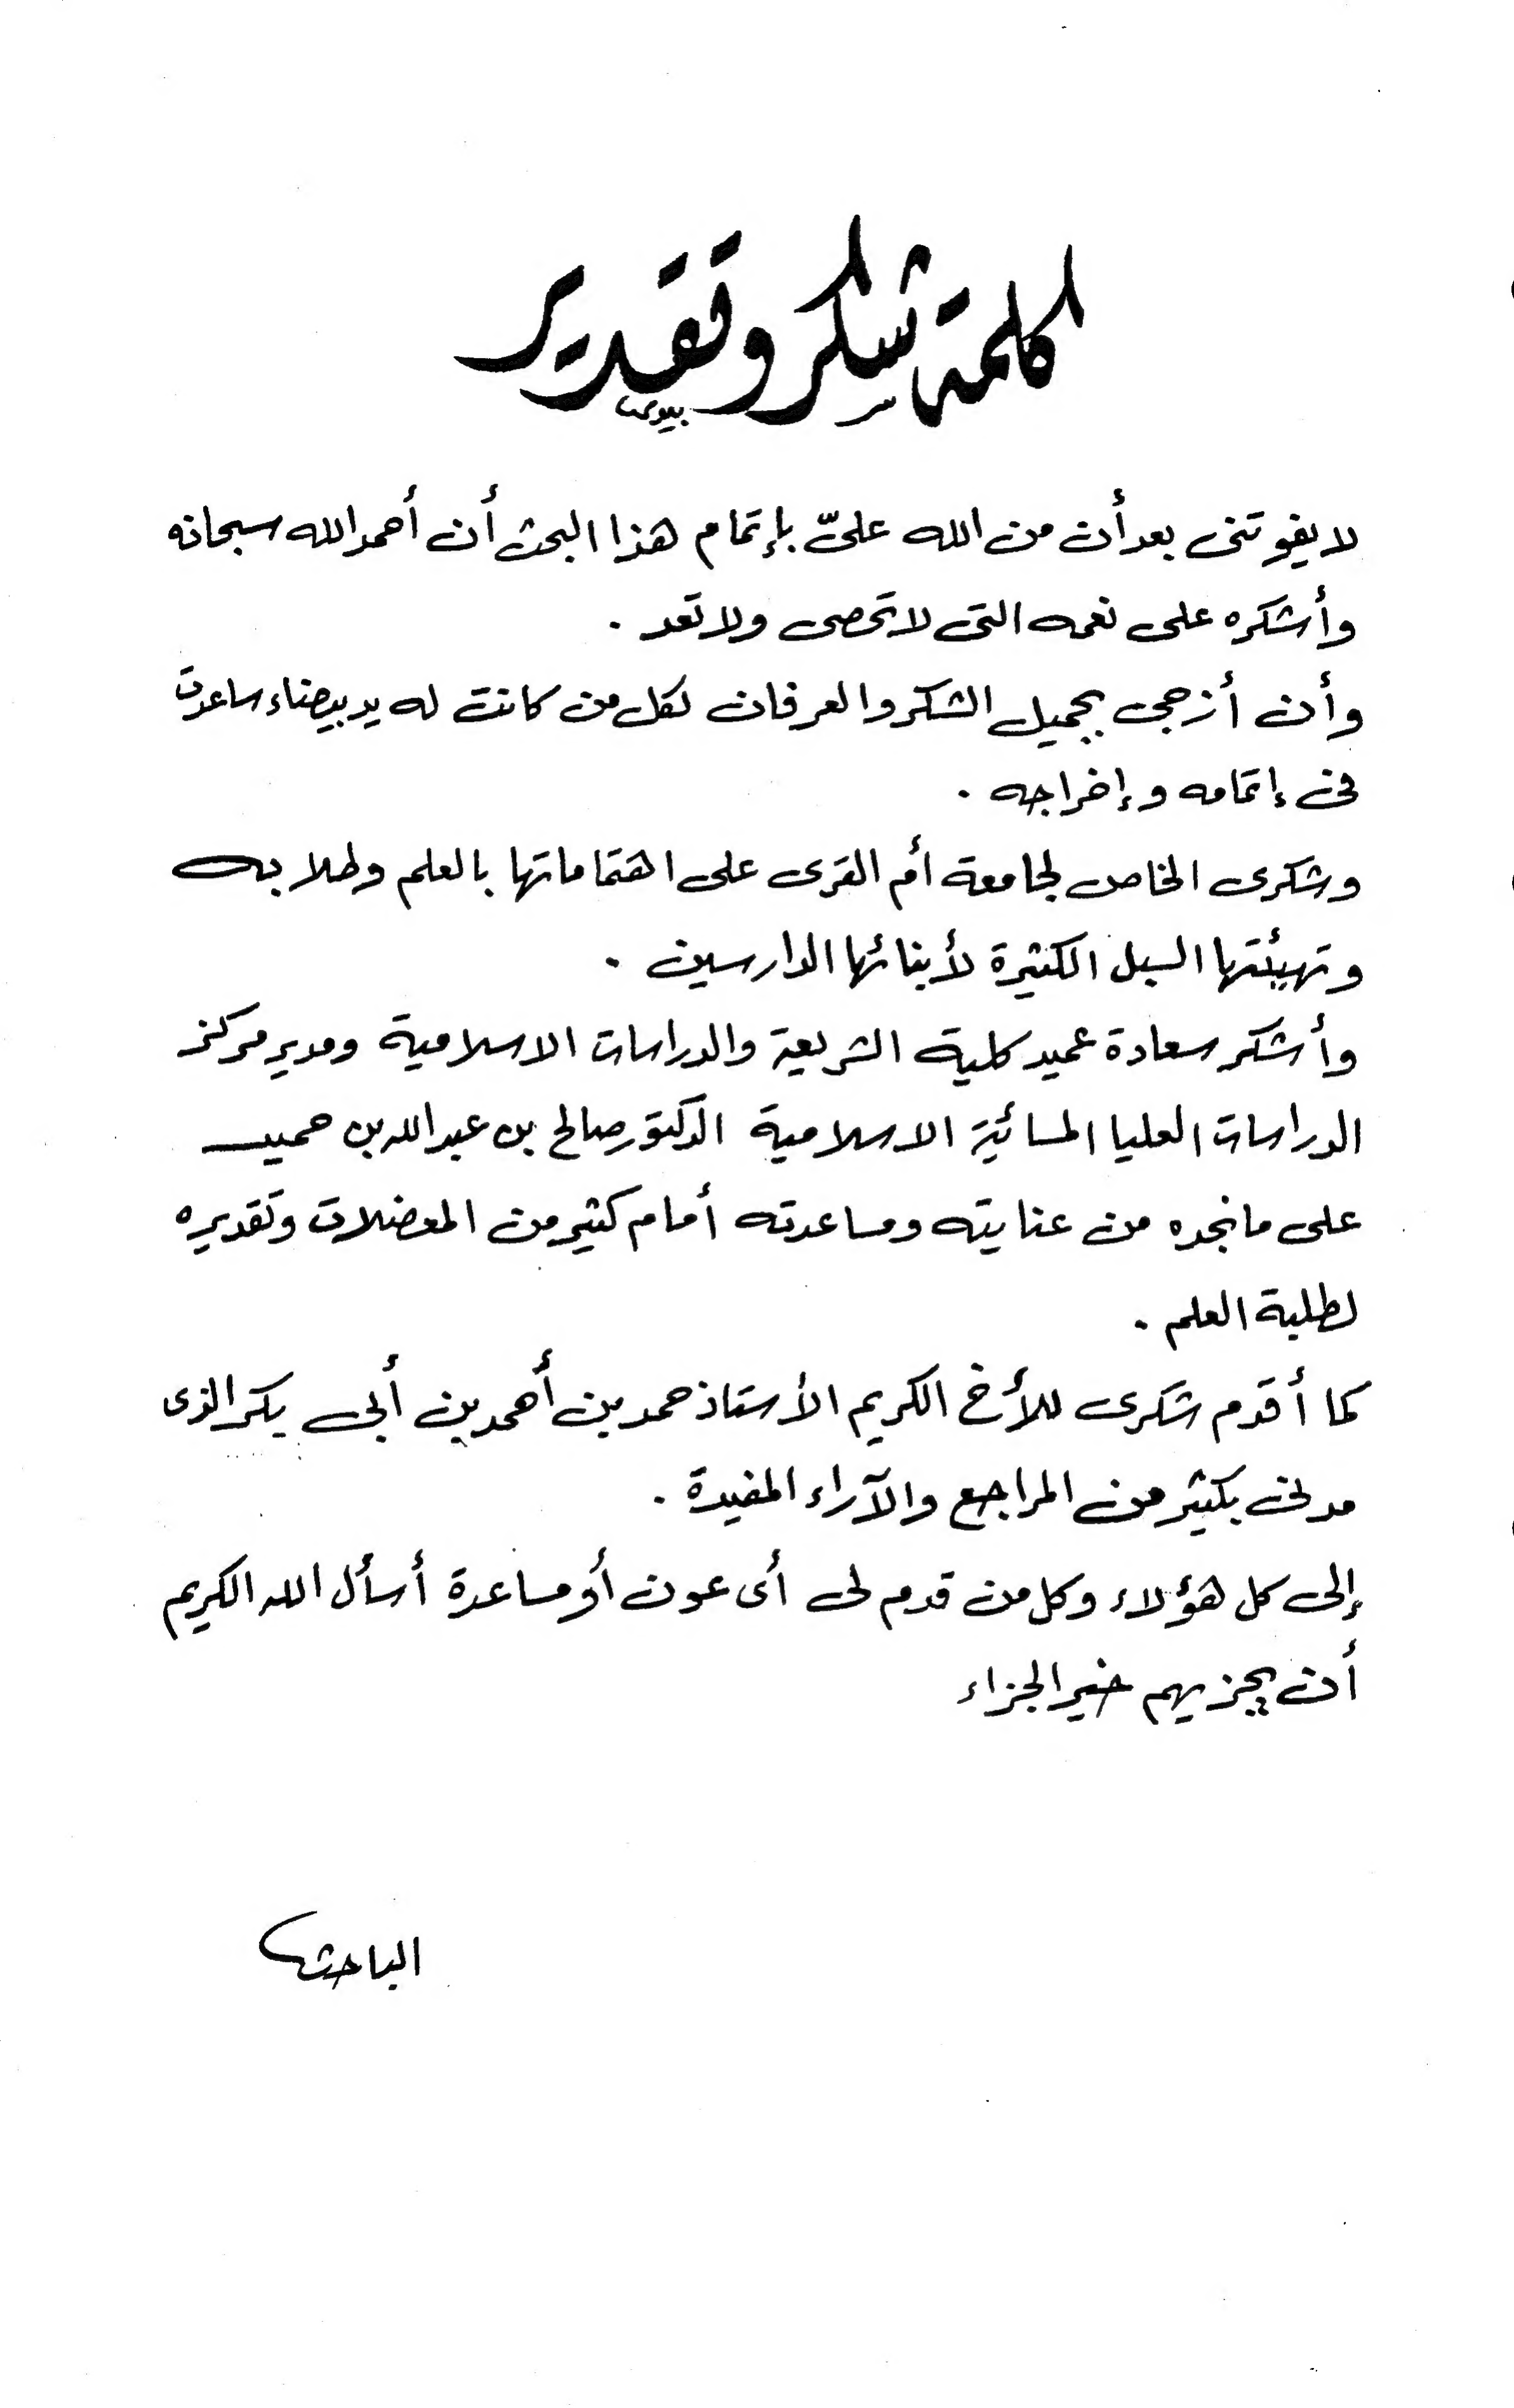 كلمة شكر وتقدير
لا يفوتنى بعد أن من الله علىّ بإتمام هذا البحث أن أحمد الله سبحانه
وأشكره على نعمه التى لا تحصى ولا تعد .
وأن أزجى بجميل الشكر والعرفان لكل من كانت له يد بيضاء ساعدت
فى إتمامه وإخراجه .
وشكرى الخاص لجامعة أم القرى على اهتماماتها بالعلم وطلابه
وتهيئتها السبل الكثيرة لأبنائها الدارسين .
وأشكر سعادة عميد كلية الشريعة والدراسات الاسلامية ومدير مركز
الدراسات العليا المسائية الاسلامية الدكتور صالح بن عبد الله بن حميد
على ما نجده من عنايته ومساعدته أمام كثير من المعضلات وتقديره
لطلبة العلم .
كما أقدم شكرى للأخ الكريم الأستاذ حمد بن أحمد بن أبى بكر الذى
مدنى بكثير من المراجع والآراء المفيدة .
إلى كل هؤلاء وكل من قدم لى أى عون أو مساعدة أسأل الله الكريم
أن يجزيهم خير الجزاء
الباحث